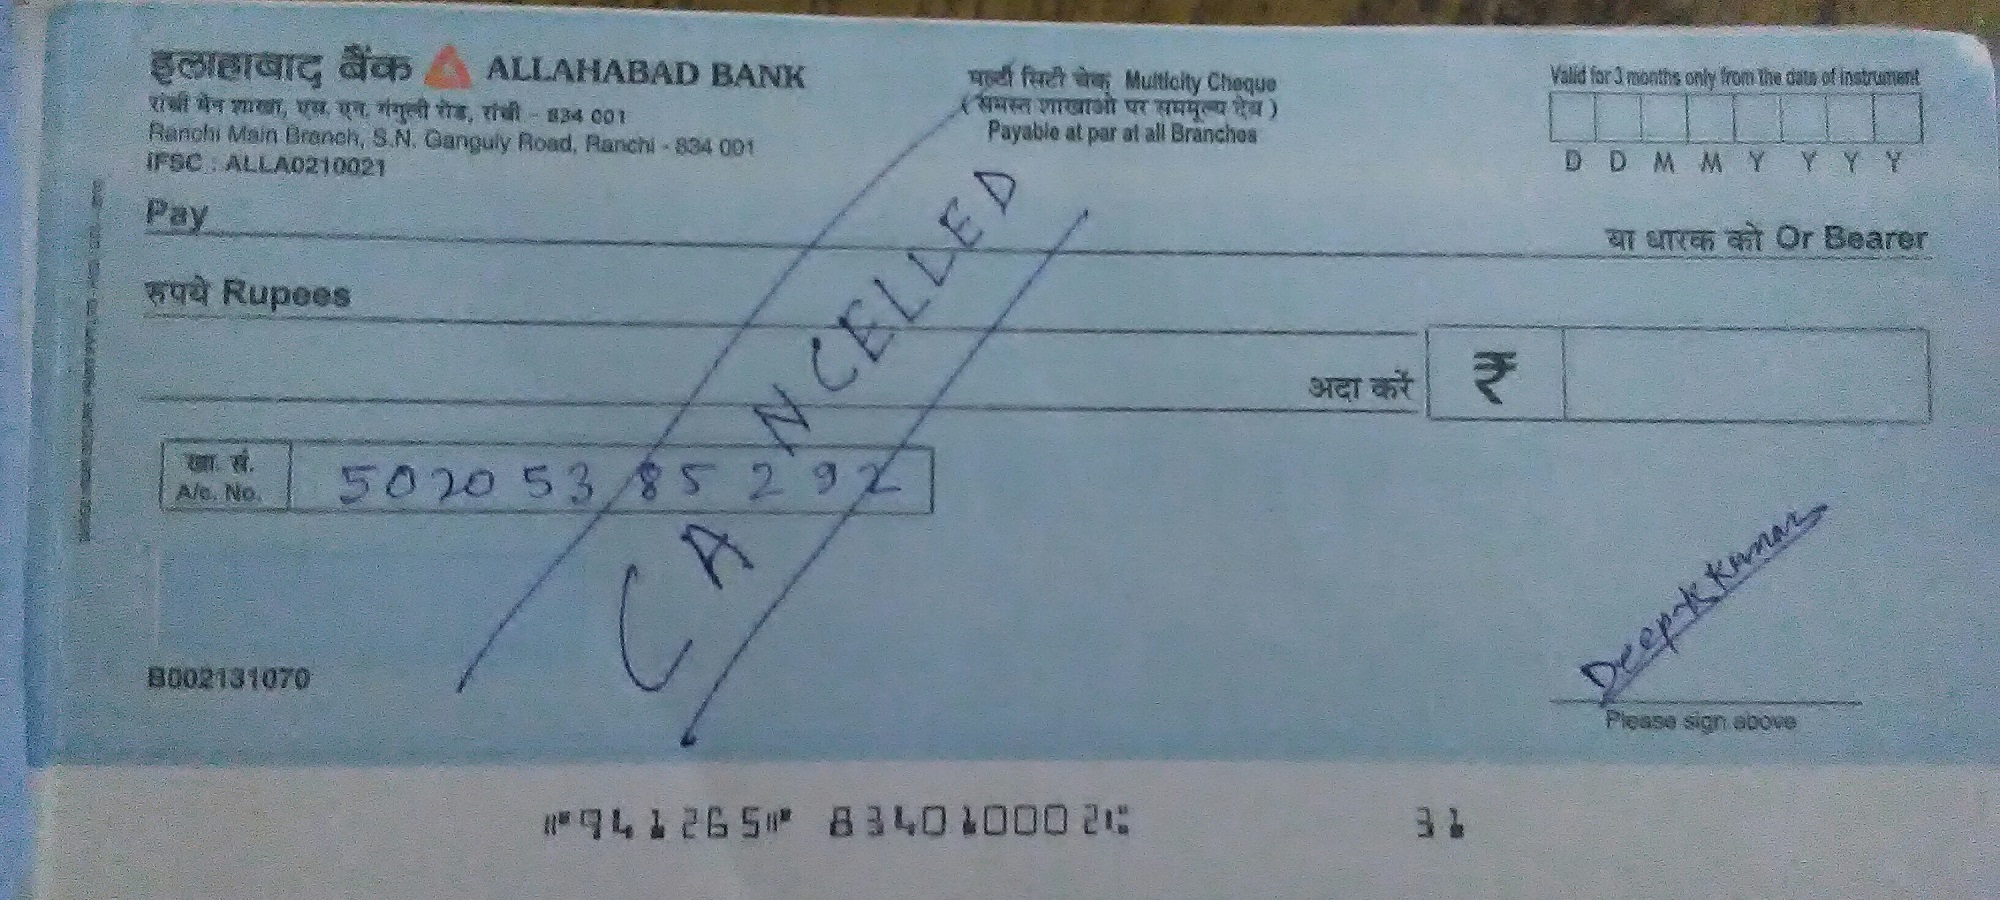 इलाहाबाद बैंक ALLAHABAD BANK
रांची मेन शाखा, एस. एन. गंगुली रोड, रांची - 834 001
Ranchi Main Branch, S.N. Ganguly Road, Ranchi - 834 001
IFSC : ALLA0210021
मल्टी सिटी चेक Multicity Cheque
( समस्त शाखाओं पर सममूल्य देय )
Payable at par at all Branches
Valid for 3 months only from the date of instrument
D D M M Y Y Y Y
Pay
या धारक को Or Bearer
रुपये Rupees
अदा करें ₹
CANCELLED
खा. सं.
A/c. No.
50205385292
B002131070
Deepak Kumar
Please sign above
"941265" 834010002 31